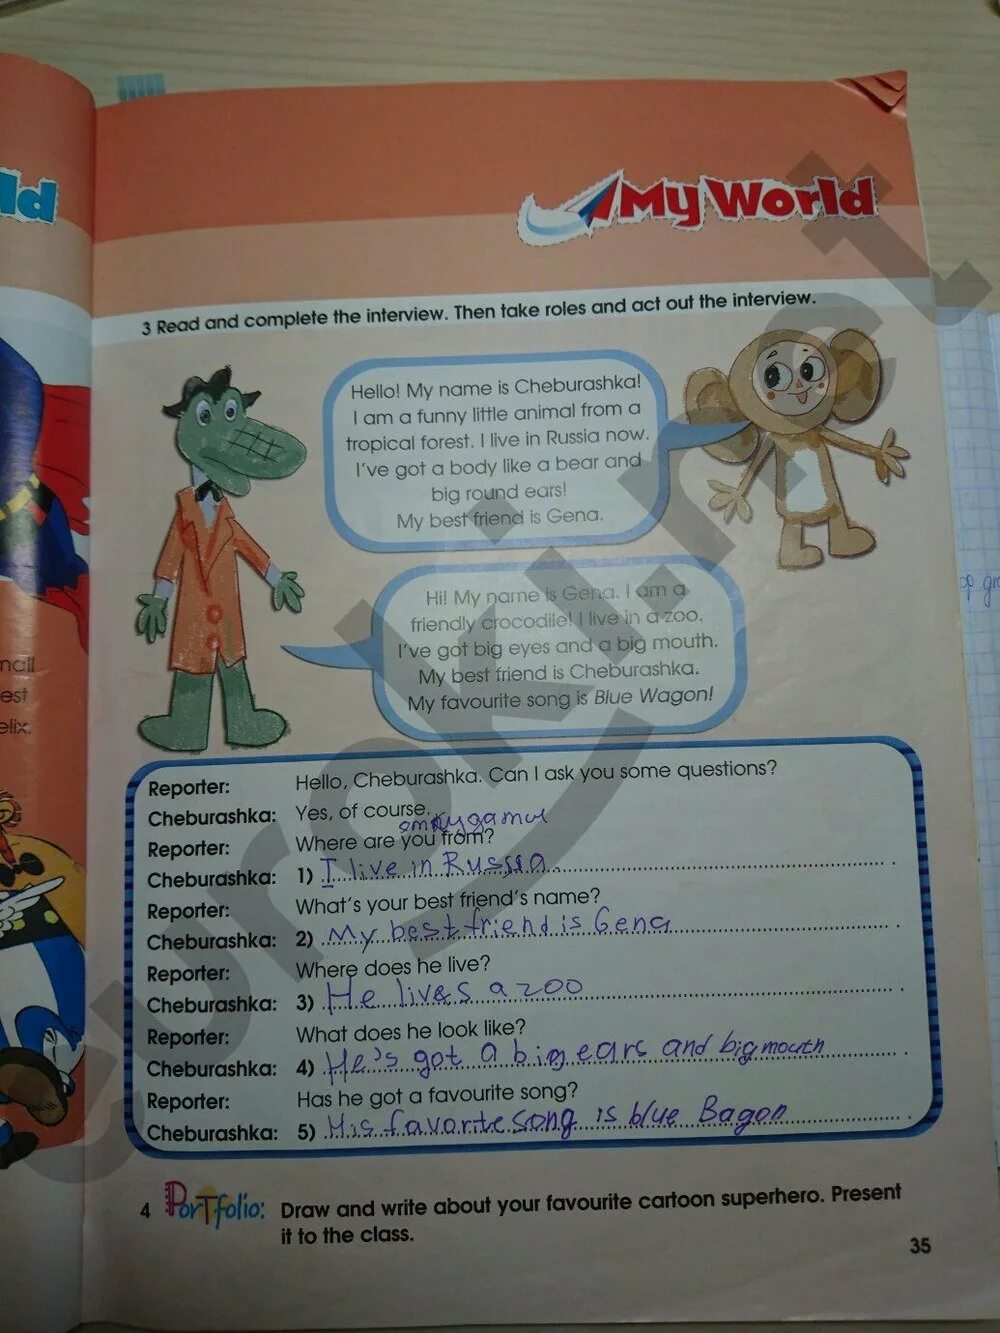 ld
My World
3 Read and complete the interview. Then take roles and act out the interview.
Hello! My name is Cheburashka!
I am a funny little animal from a
tropical forest. I live in Russia now.
I've got a body like a bear and
big round ears!
My best friend is Gena.
Hi! My name is Gena. I am a
friendly crocodile! I live in a zoo.
I've got big eyes and a big mouth.
My best friend is Cheburashka.
My favourite song is Blue Wagon!
mall
est
elix.
Reporter: Hello, Cheburashka. Can I ask you some questions?
Cheburashka: Yes, of course.
Reporter: Where are you from?
Cheburashka: 1) I live in Russia
Reporter: What's your best friend's name?
Cheburashka: 2) My best friend is Gena
Reporter: Where does he live?
Cheburashka: 3) He lives a zoo
Reporter: What does he look like?
Cheburashka: 4) He's got a big ears and big mouth
Reporter: Has he got a favourite song?
Cheburashka: 5) His favorite song is blue Bagon
4 Portfolio: Draw and write about your favourite cartoon superhero. Present
it to the class.
35